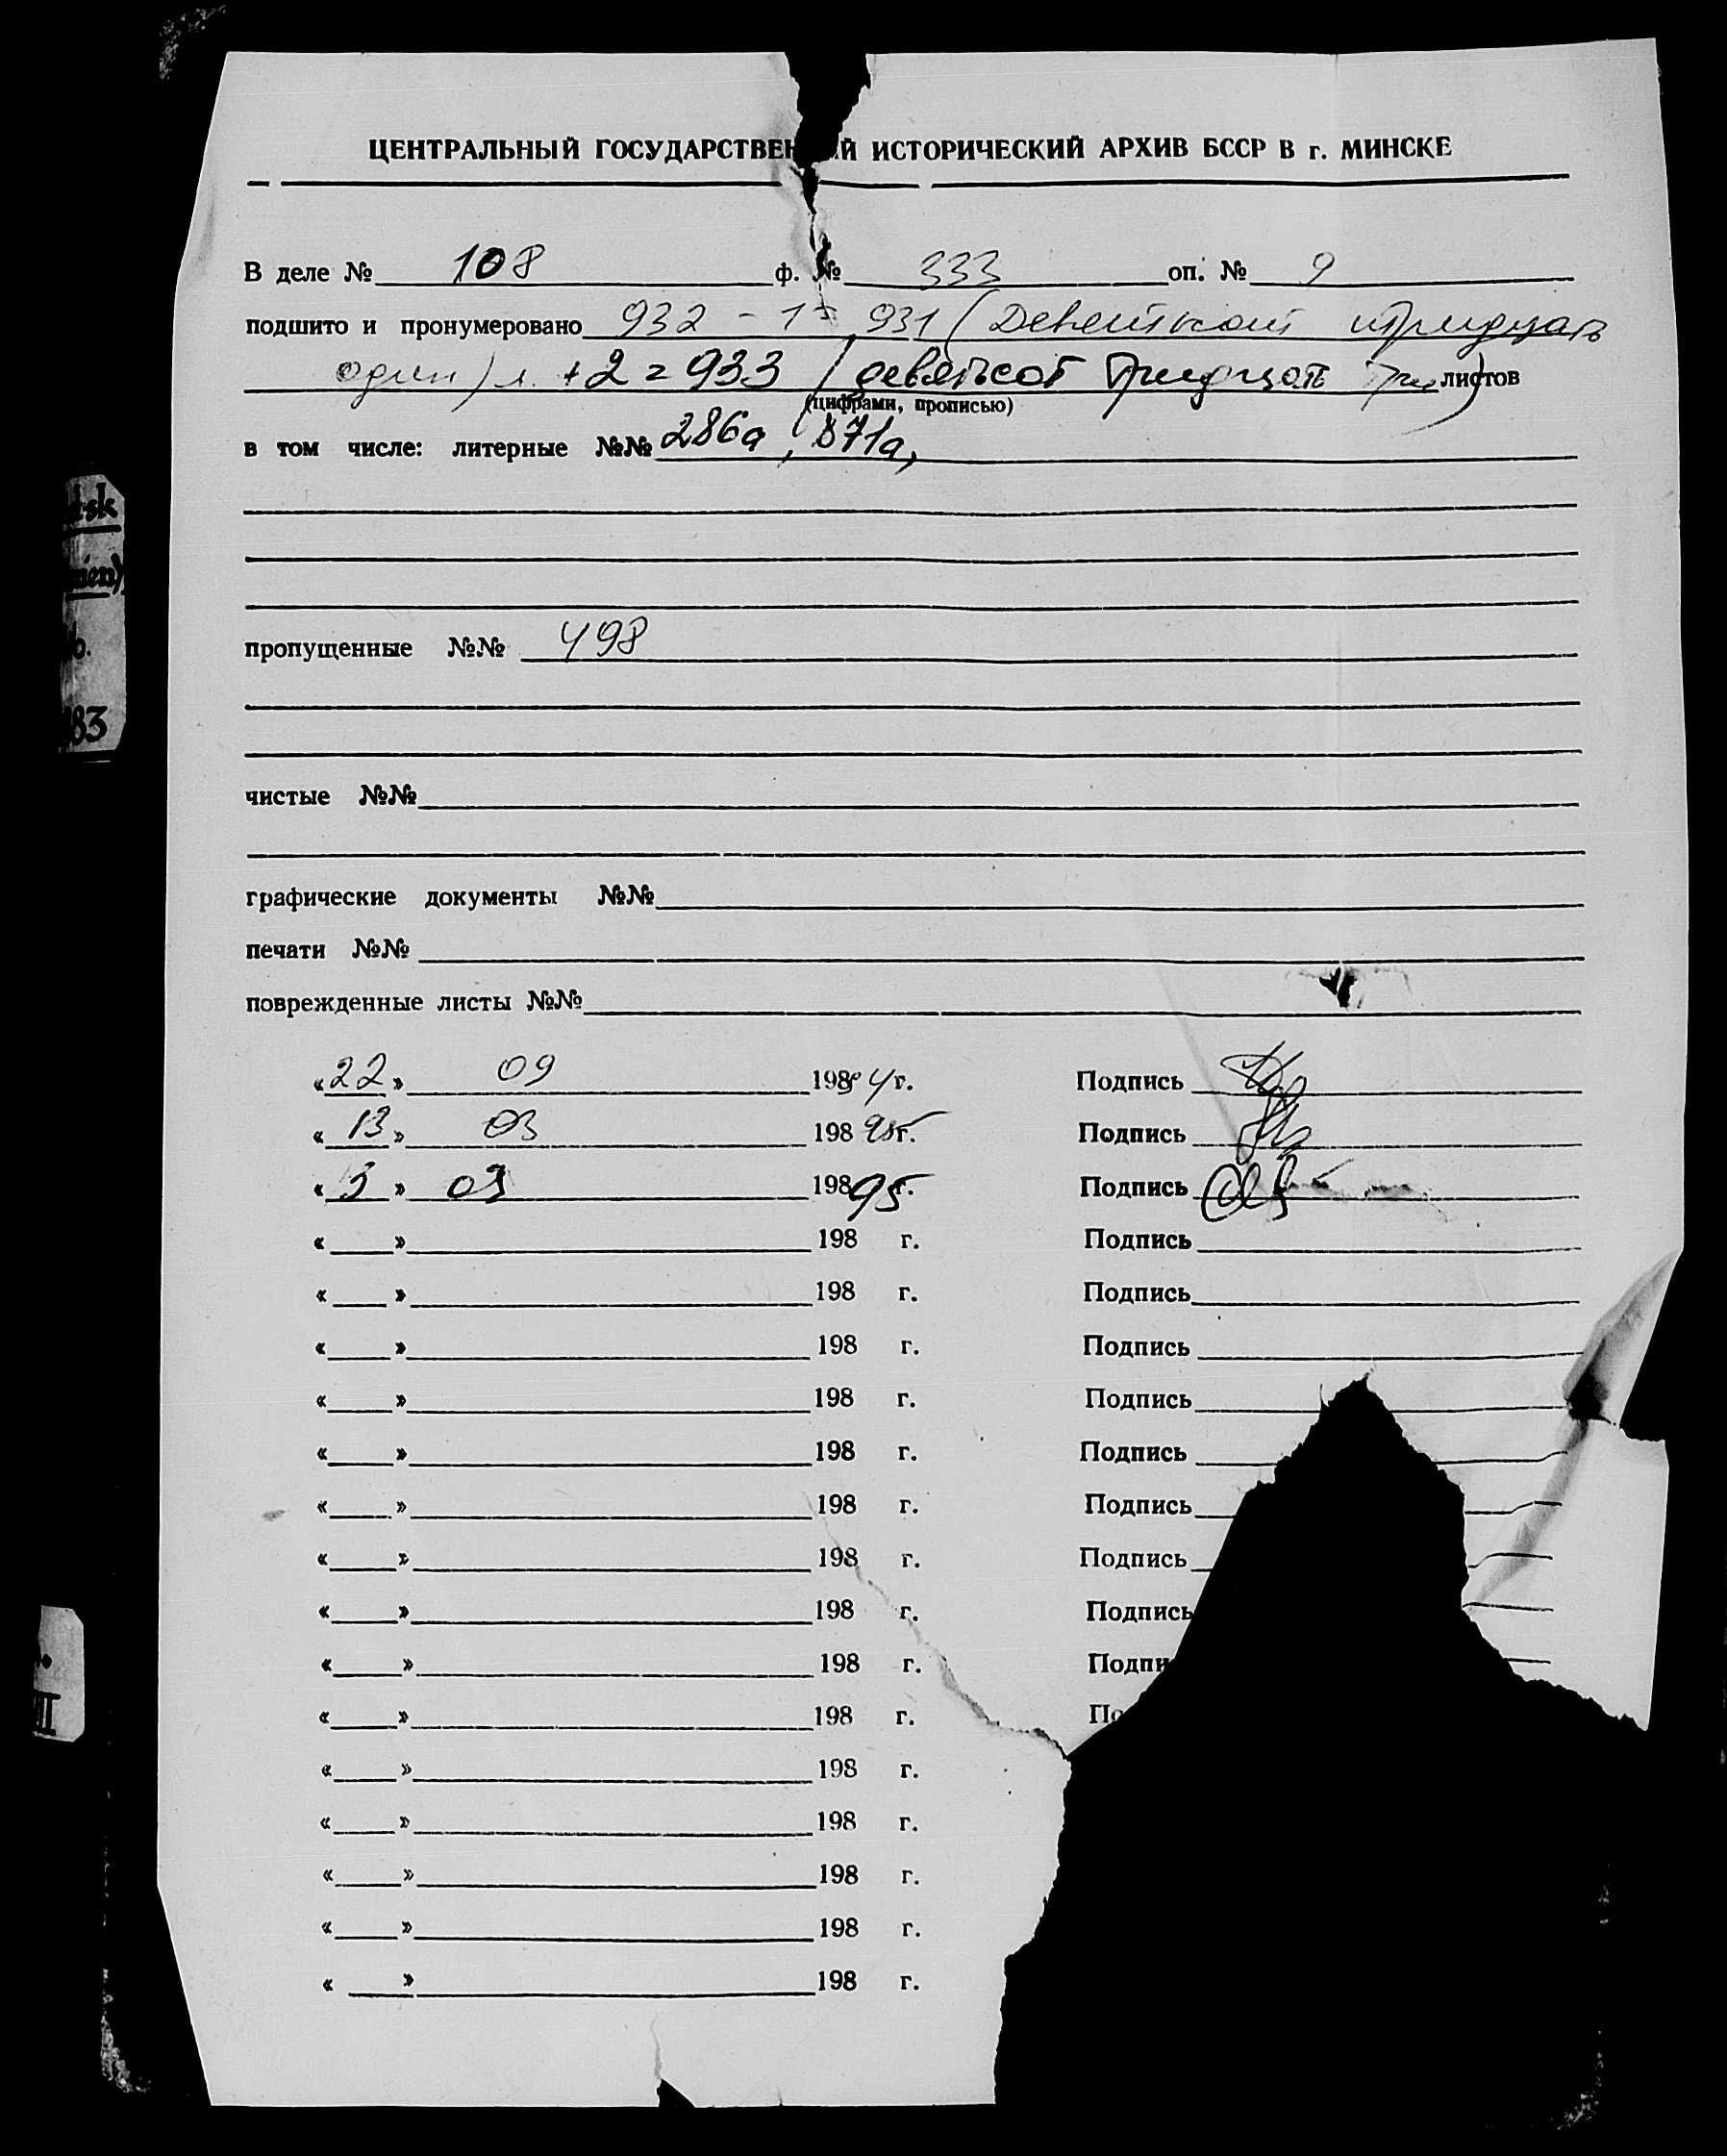 ЦЕНТРАЛЬНЫЙ ГОСУДАРСТВЕН ИЙ ИСТОРИЧЕСКИЙ АРХИВ БССР В г. МИНСКЕ
В деле № 108 ф. № 333 оп. № 9
подшито и пронумеровано 932 - 1 = 931 (Девятьсот тридцать
один) л. + 2 = 933 (девятьсот тридцать три) листов
(цифрами, прописью)
в том числе: литерные №№ 286а, 871а,
пропущенные №№ 498
чистые №№
графические документы №№
печати №№
поврежденные листы №№
«22» 09 198 4 г. Подпись
«13» 03 198 95 г. Подпись
«3» 03 198 95 г. Подпись
« » 198 г. Подпись
« » 198 г. Подпись
« » 198 г. Подпись
« » 198 г. Подпись
« » 198 г. Подпись
« » 198 г. Подпись
« » 198 г. Подпись
« » 198 г. Подпись
« » 198 г. Подпи
« » 198 г. По
« » 198 г.
« » 198 г.
« » 198 г.
« » 198 г.
« » 198 г.
rsk
mien)
b.
83
II